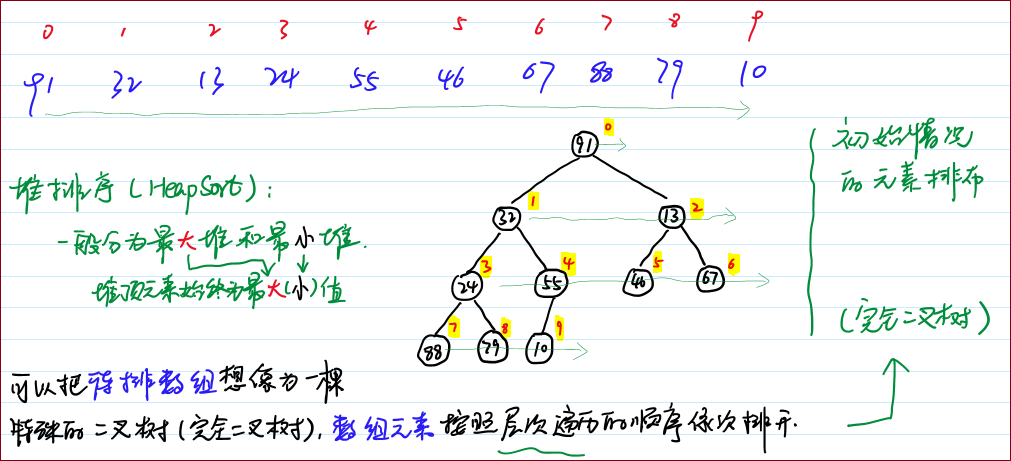 0 1 2 3 4 5 6 7 8 9
91 32 13 24 55 46 67 88 79 10
堆排序(HeapSort):
一般分为最大堆和最小堆.
堆顶元素始终为最大(小)值
91 0
32 1 13 2
24 3 55 4 46 5 67 6
88 7 79 8 10 9
初始情况
的元素排布
(完全二叉树)
可以把待排数组想像为一棵
特殊的二叉树(完全二叉树),数组元素按照层次遍历的顺序依次排开.